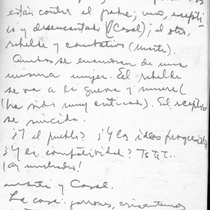 están contra el padre; uno, escépti-
co y desencantado (Casal); el otro,
rebelde y combativo (Martí).
Ambos se enamoran de una
misma mujer. El rebelde
se va a la guerra y muere
(ha sido muy criticado). El escéptico
se suicida.
¿Y el pueblo? ¿Y las ideas progresistas
¿Y la combatividad? Ts, ts, t..
¡ay muchachos!
Martí y Casal.
La cosa